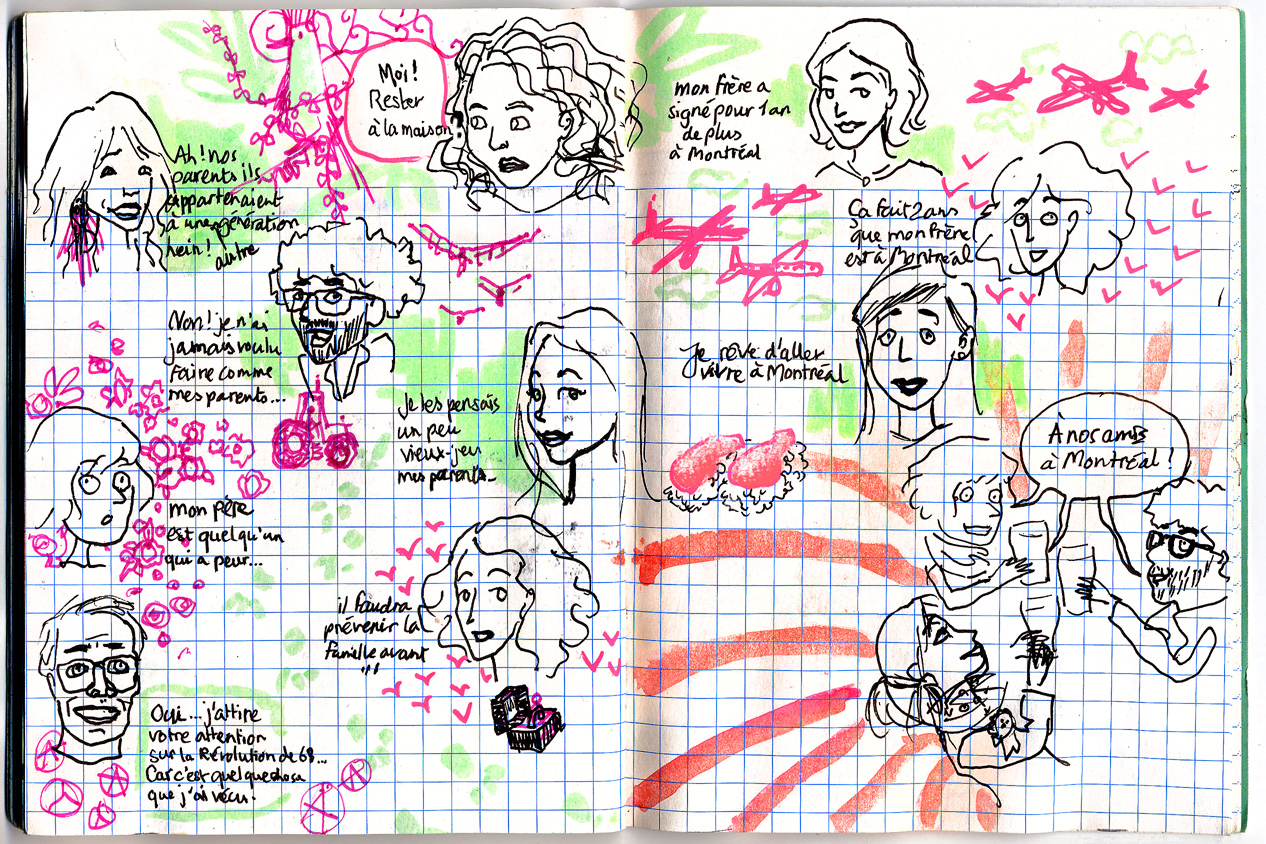 Moi!
Rester
à la maison
Ah! nos
parents ils
appartenaient
à une génération
hein! autre
Non! je n'ai
jamais voulu
faire comme
mes parents...
Je les pensais
un peu
vieux-jeu
mes parents...
mon père
est quelqu'un
qui a peur...
il faudra
prévenir la
famille avant
!!!
Oui...j'attire
votre attention
sur la Révolution de 68...
Car c'est quelque chose
que j'ai vécu!
mon frère a
signé pour 1 an
de plus
à Montréal
Ça fait 2 ans
que mon frère
est à Montréal
Je rêve d'aller
vivre à Montréal
À nos amis
à Montréal!